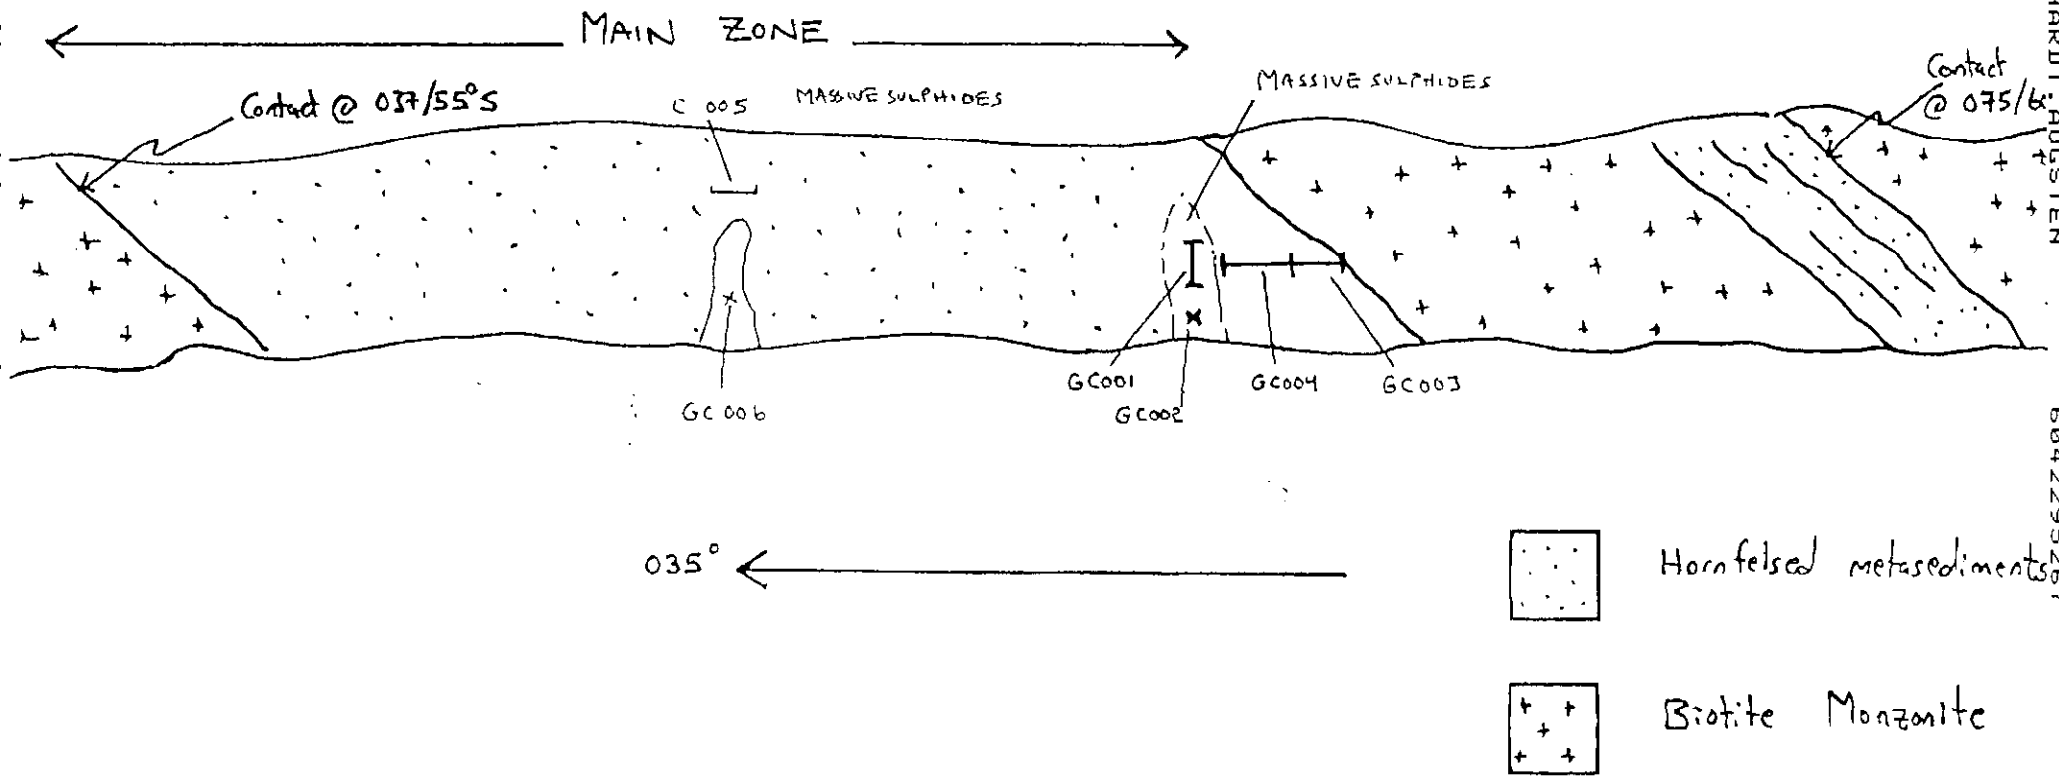 MAIN ZONE
Contact @ 037/55°S
C 005
MASSIVE SULPHIDES
MASSIVE SULPHIDES
Contact
@ 075/6
GC001
GC004
GC003
GC006
GC002
035°
Hornfelsed metasediments
Biotite Monzonite
HARDT.AUGSTEN